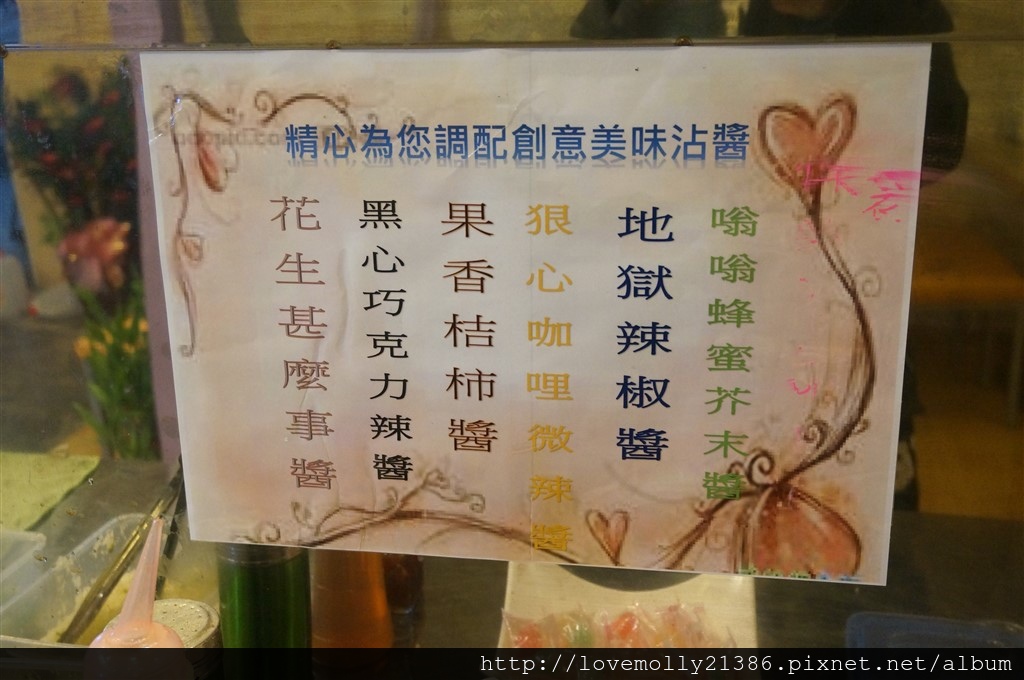 精心為您調配創意美味沾醬
嗡嗡蜂蜜芥末醬
地獄辣椒醬
狠心咖哩微辣醬
果香桔柿醬
黑心巧克力辣醬
花生甚麼事醬
http://lovemolly21386.pixnet.net/album